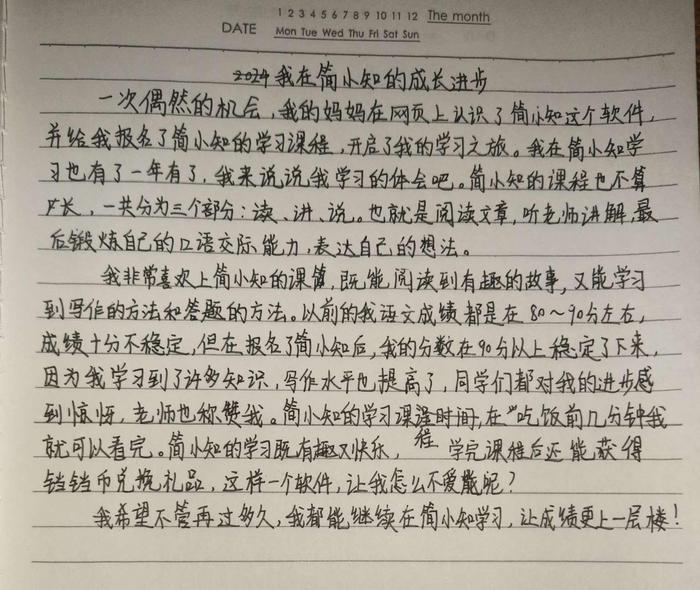 1 2 3 4 5 6 7 8 9 10 11 12 The month
DATE Mon Tue Wed Thu Fri Sat Sun
2024我在简小知的成长进步
一次偶然的机会，我的妈妈在网页上认识了简小知这个软件，
并给我报名了简小知的学习课程，开启了我的学习之旅。我在简小知学
习也有了一年有了，我来说说我学习的体会吧。简小知的课程也不算
长，一共分为三个部分：读、讲、说。也就是阅读文章，听老师讲解，最
后锻炼自己的口语交际能力，表达自己的想法。
我非常喜欢上简小知的课，既能阅读到有趣的故事，又能学习
到写作的方法和答题的方法。以前的我语文成绩都是在80～90分左右，
成绩十分不稳定，但在报名了简小知后，我的分数在90分以上稳定了下来，
因为我学习到了许多知识，写作水平也提高了，同学们都对我的进步感
到惊讶，老师也称赞我。简小知的学习课程时间，在"吃饭前几分钟我
就可以看完。简小知的学习既有趣又快乐，学完课程后还能获得
铛铛币兑换礼品，这样一个软件，让我怎么不爱呢？
我希望不管再过多久，我都能继续在简小知学习，让成绩更上一层楼！